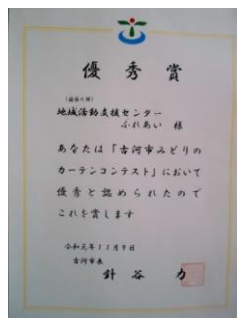 優秀賞
地域活動支援センター
ふれあい 様
あなたは「古河市みどりの
カーテンコンテスト」において
優秀と認められたので
これを賞します
令和元年11月9日
古河市長
針谷 力